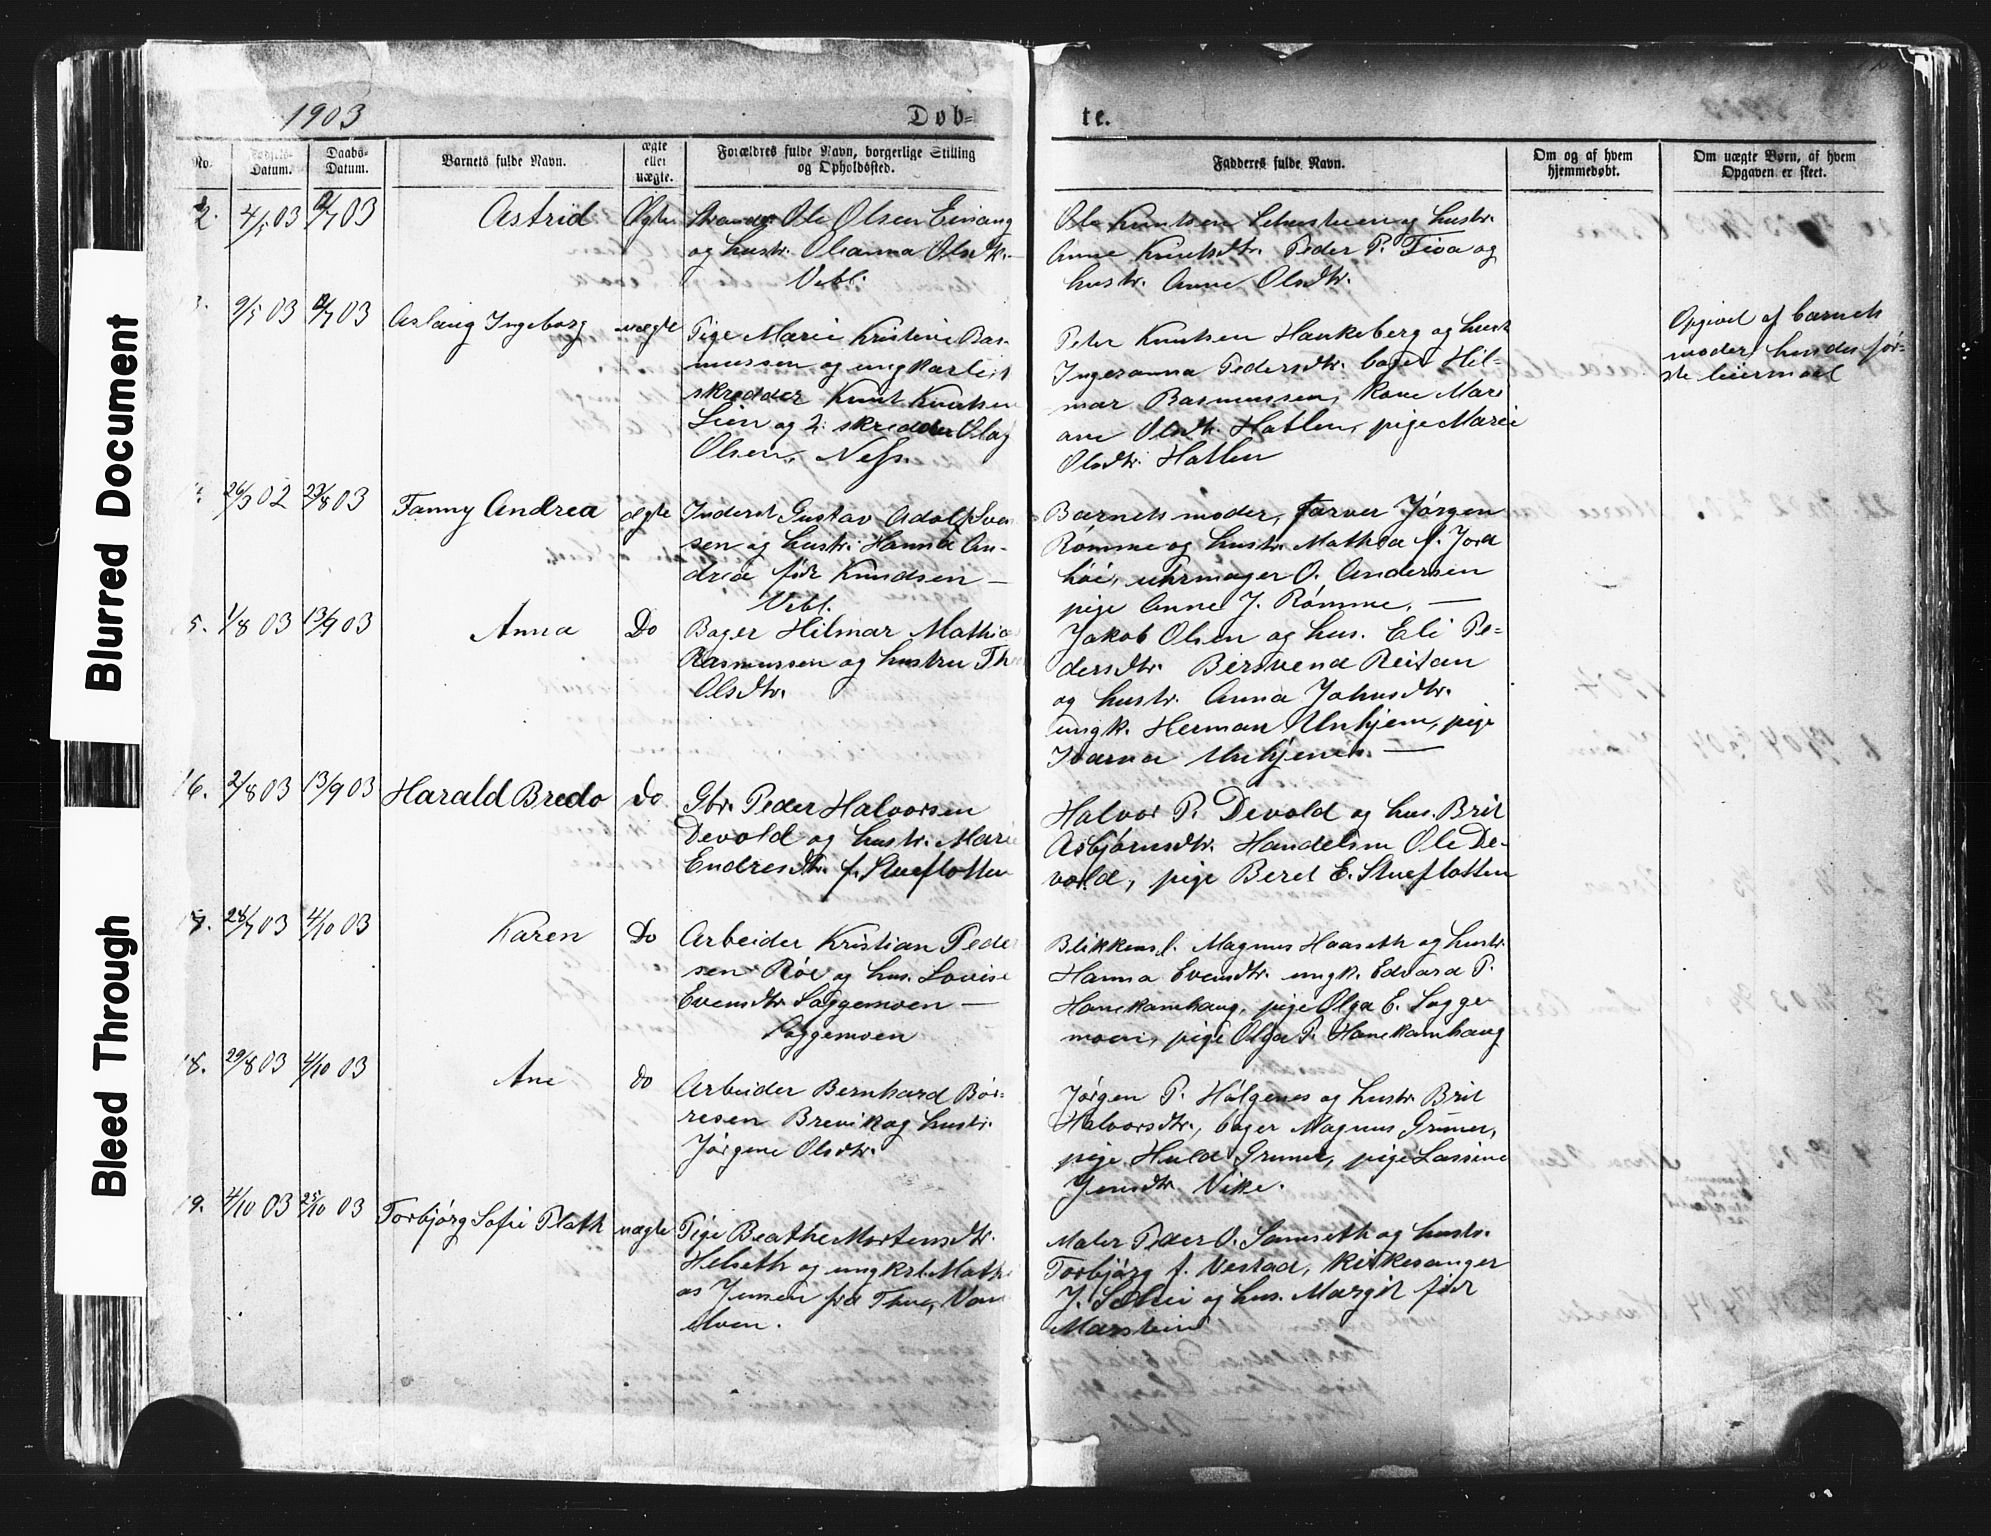 1903
Døb=
te.
No.
Fødsels-
Datum.
Daabs-
Datum.
Barnets fulde Navn.
ægte
eller
uægte.
Forældres fulde Navn, borgerlige Stilling
og Opholdssted.
Fadderes fulde Navn.
Om og af hvem
hjemmedøbt.
Om uægte Børn, af hvem
Opgaven er skeet.
2. 4/5 03 03 Astrid Ægte
Ole Olsen Einang
og hustr. Oleanna Olsdtr. —
Vebl.
Ole Knutsen og hustr.
Anne Knutsdtr. Peder P. Fiva og
hustr. Anne Olsdtr.
3. 9/5 03 03 Aslaug Ingeborg uægte
Pige Marie Kristine Ras-
mussen og ungkarl
skredder Knut Knutsen
Lien og 2: skredder Olag
Olsen, Ness.
Peter Knutsen Hankeberg og hustr
Ingeranna Pedersdtr. bager Hil-
mar Rasmussen, Kone Mari
ane Olsdtr. Hatlen, pige Marie
Olsdtr. Hatlen
Opgivet af barnets
moder, hendes før-
ste leiermaal
26/3 02 23/8 03 Fanny Andrea ægte
Inderst Gustav Adolf Sven
sen og hustr. Hanna An-
drea født Knudsen —
Vebl.
Barnets moder, farver Jørgen
Rømme og hustr. Mathea f. Jord
høi, uhrmager O. Andersen
pige Anne J. Rømme. —
5. 1/8 03 13/9 03 Anna Do
Bager Hilmar Mathias
Rasmussen og hustru Th
Olsdtr.
Jakob Olsen og hus. Eli Pe-
dersdtr. Bersvend Reitan
og hustr. Anna Johnsdtr.
ungk. Herman Unhjem, pige
Ivarna Unhjem. —
16. 2/8 03 13/9 03 Harald Bredo do
Gbr. Peder Halvorsen
Devold og hustr. Marie
Endresdtr. f. Stueflotten
Halvor P. Devold og hus. Brit
Asbjørnsdtr. Handelsm Ole De-
vold, pige Beret E. Stueflotten
17. 28/7 03 4/10 03 Karen Do
Arbeider Kristian Peder
sen Røe og hus. Lovise
Evensdtr. Soggemoen —
Soggemoen
Blikkensl. Magnus Haaseth og hustr.
Hanna Evensdtr. ungk. Edvard P.
Hanekamhaug, pige Olga E. Sogge
moen, pige Olga P. Hanekamhaug
18. 29/8 03 4/10 03 Ane do
Arbeider Bernhard Bør-
resen Brevik og hustr.
Jørgine Olsdtr.
Jørgen P. Hølgenes og hustr. Brit
Halvorsdtr., bager Magnus Grüner,
pige Huld Gruner, pige Lassine
Jensdtr. Vike.
19. 4/10 03 25/10 03 Torbjørg Sofie Plath uægte
Pige Beathe Mortensdtr.
Helseth og ungkrl. Math
as Jensen fra Thue, Van
elven.
Maler Peder O. Samseth og hustr.
Torbjørg f. Vestad, kirkesanger
J. Sæthei og hus. Margit født
Marstein
Blurred Document
Bleed Through